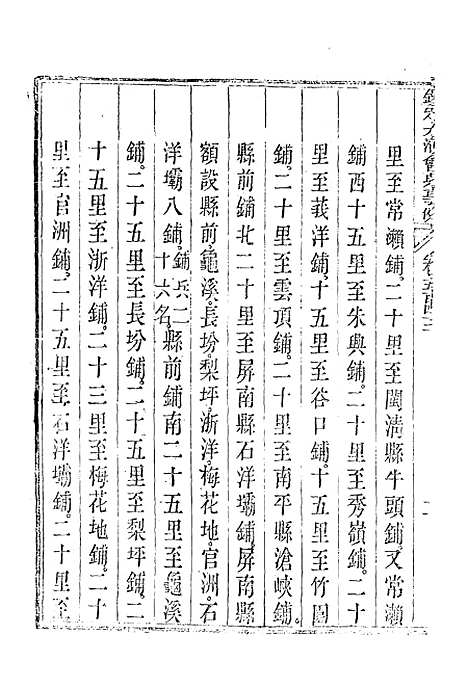 欽定大清會典事例 卷五百四十三
里至常瀨鋪二十里至閩淸縣牛頭鋪又常瀨
鋪西十五里至朱奧鋪二十里至秀嶺鋪二十
里至莪洋鋪二十里至谷口鋪十五里至竹園
鋪二十里至雲頂鋪二十里至南平縣滄峽鋪
縣前鋪北二十里至屏南縣石洋壩鋪屏南縣
額設縣前龜溪長坋梨坪浙洋梅花地官洲石
洋壩八鋪鋪兵二十六名縣前鋪南二十五里至龜溪
鋪二十五里至長坋鋪二十五里至梨坪鋪二
十五里至浙洋鋪二十三里至梅花地鋪二十
里至官洲鋪二十五里至石洋壩鋪二十里至